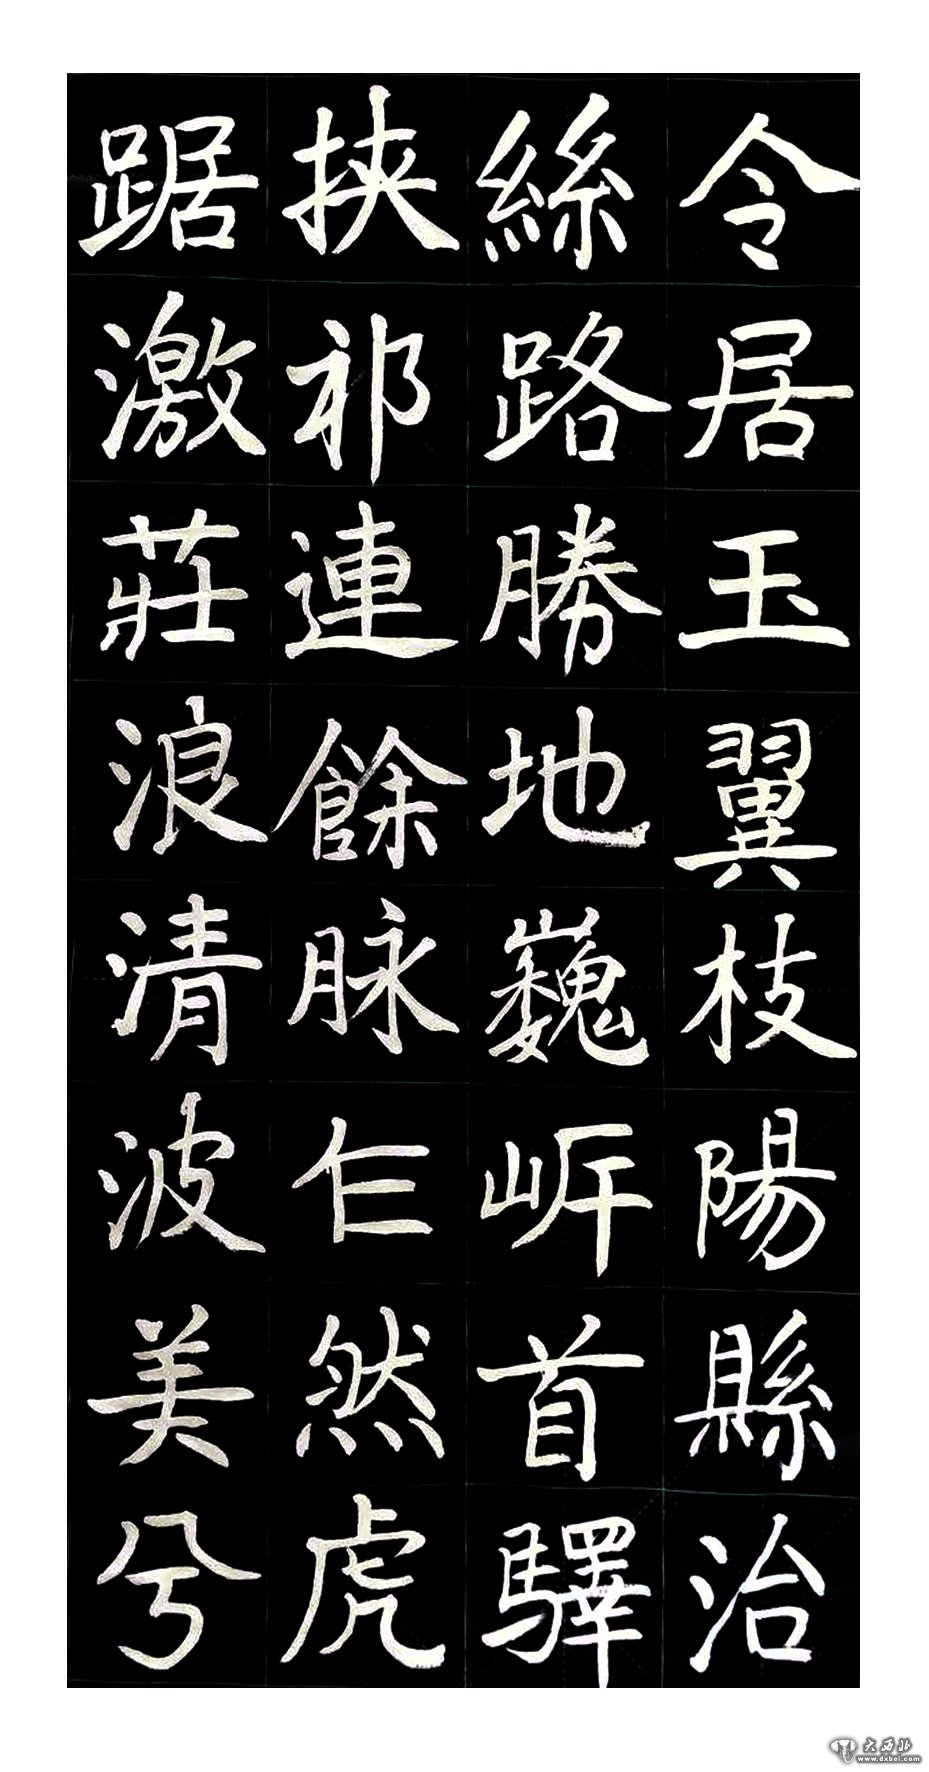 令居玉翼枝陽縣治
絲路勝地巍岓首驛
挾祁連餘脉乍然虎
踞激莊浪清波美兮
大西北
www.dxbei.com